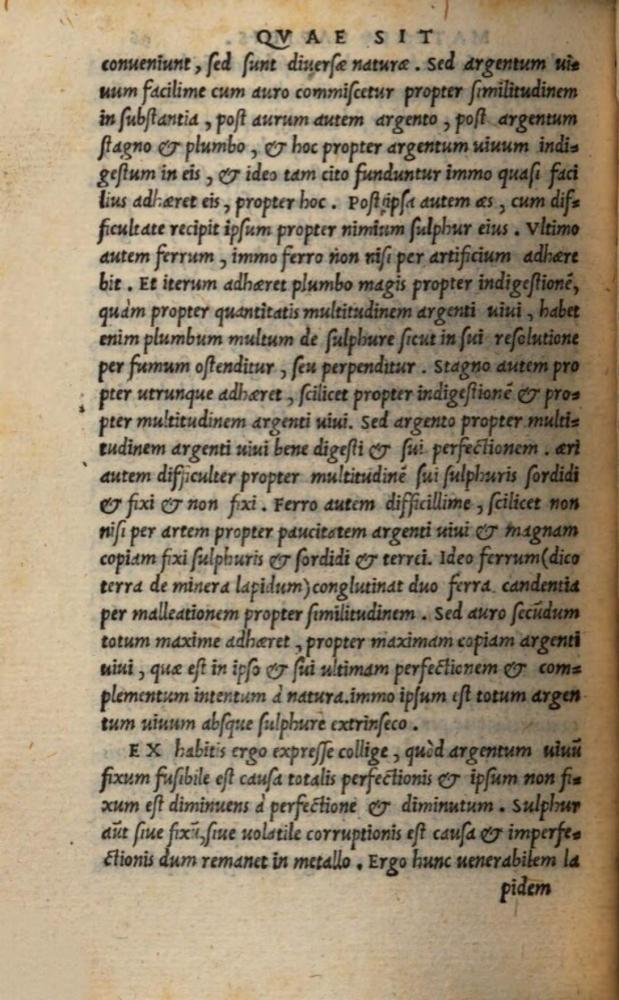 QVAE SIT
conueniunt, sed sunt diuersæ naturæ. Sed argentum ui=
uum facilime cum auro commiscetur propter similitudinem
in substantia, post aurum autem argento, post argentum
stagno & plumbo, & hoc propter argentum uiuum indi=
gestum in eis, & ideo tam cito funduntur immo quasi faci
lius adhæret eis, propter hoc. Post ipsa autem æs, cum dif=
ficultate recipit ipsum propter nimium sulphur eius. Vltimo
autem ferrum, immo ferro non nisi per artificium adhære
bit. Et iterum adhæret plumbo magis propter indigestionẽ,
quàm propter quantitatis multitudinem argenti uiui, habet
enim plumbum multum de sulphure sicut in sui resolutione
per fumum ostenditur, seu perpenditur. Stagno autem pro
pter utrunque adhæret, scilicet propter indigestionẽ & pro=
pter multitudinem argenti uiui. Sed argento propter multi=
tudinem argenti uiui bene digesti & sui perfectionem. æri
autem difficulter propter multitudinẽ sui sulphuris sordidi
& fixi & non fixi. Ferro autem difficillime, scilicet non
nisi per artem propter paucitatem argenti uiui & magnam
copiam fixi sulphuris & sordidi & terrei. Ideo ferrum (dico
terra de minera lapidum) conglutinat duo ferra candentia
per malleationem propter similitudinem. Sed auro secũdum
totum maxime adhæret, propter maximam copiam argenti
uiui, quæ est in ipso & sui ultimam perfectionem & com=
plementum intentum à natura. immo ipsum est totum argen
tum uiuum absque sulphure extrinseco.
EX habitis ergo expresse collige, quòd argentum uiuũ
fixum fusibile est causa totalis perfectionis & ipsum non fi=
xum est diminuens à perfectione & diminutum. Sulphur
aũt siue fixũ, siue uolatile corruptionis est causa & imperfe=
ctionis dum remanet in metallo. Ergo hunc uenerabilem la
pidem